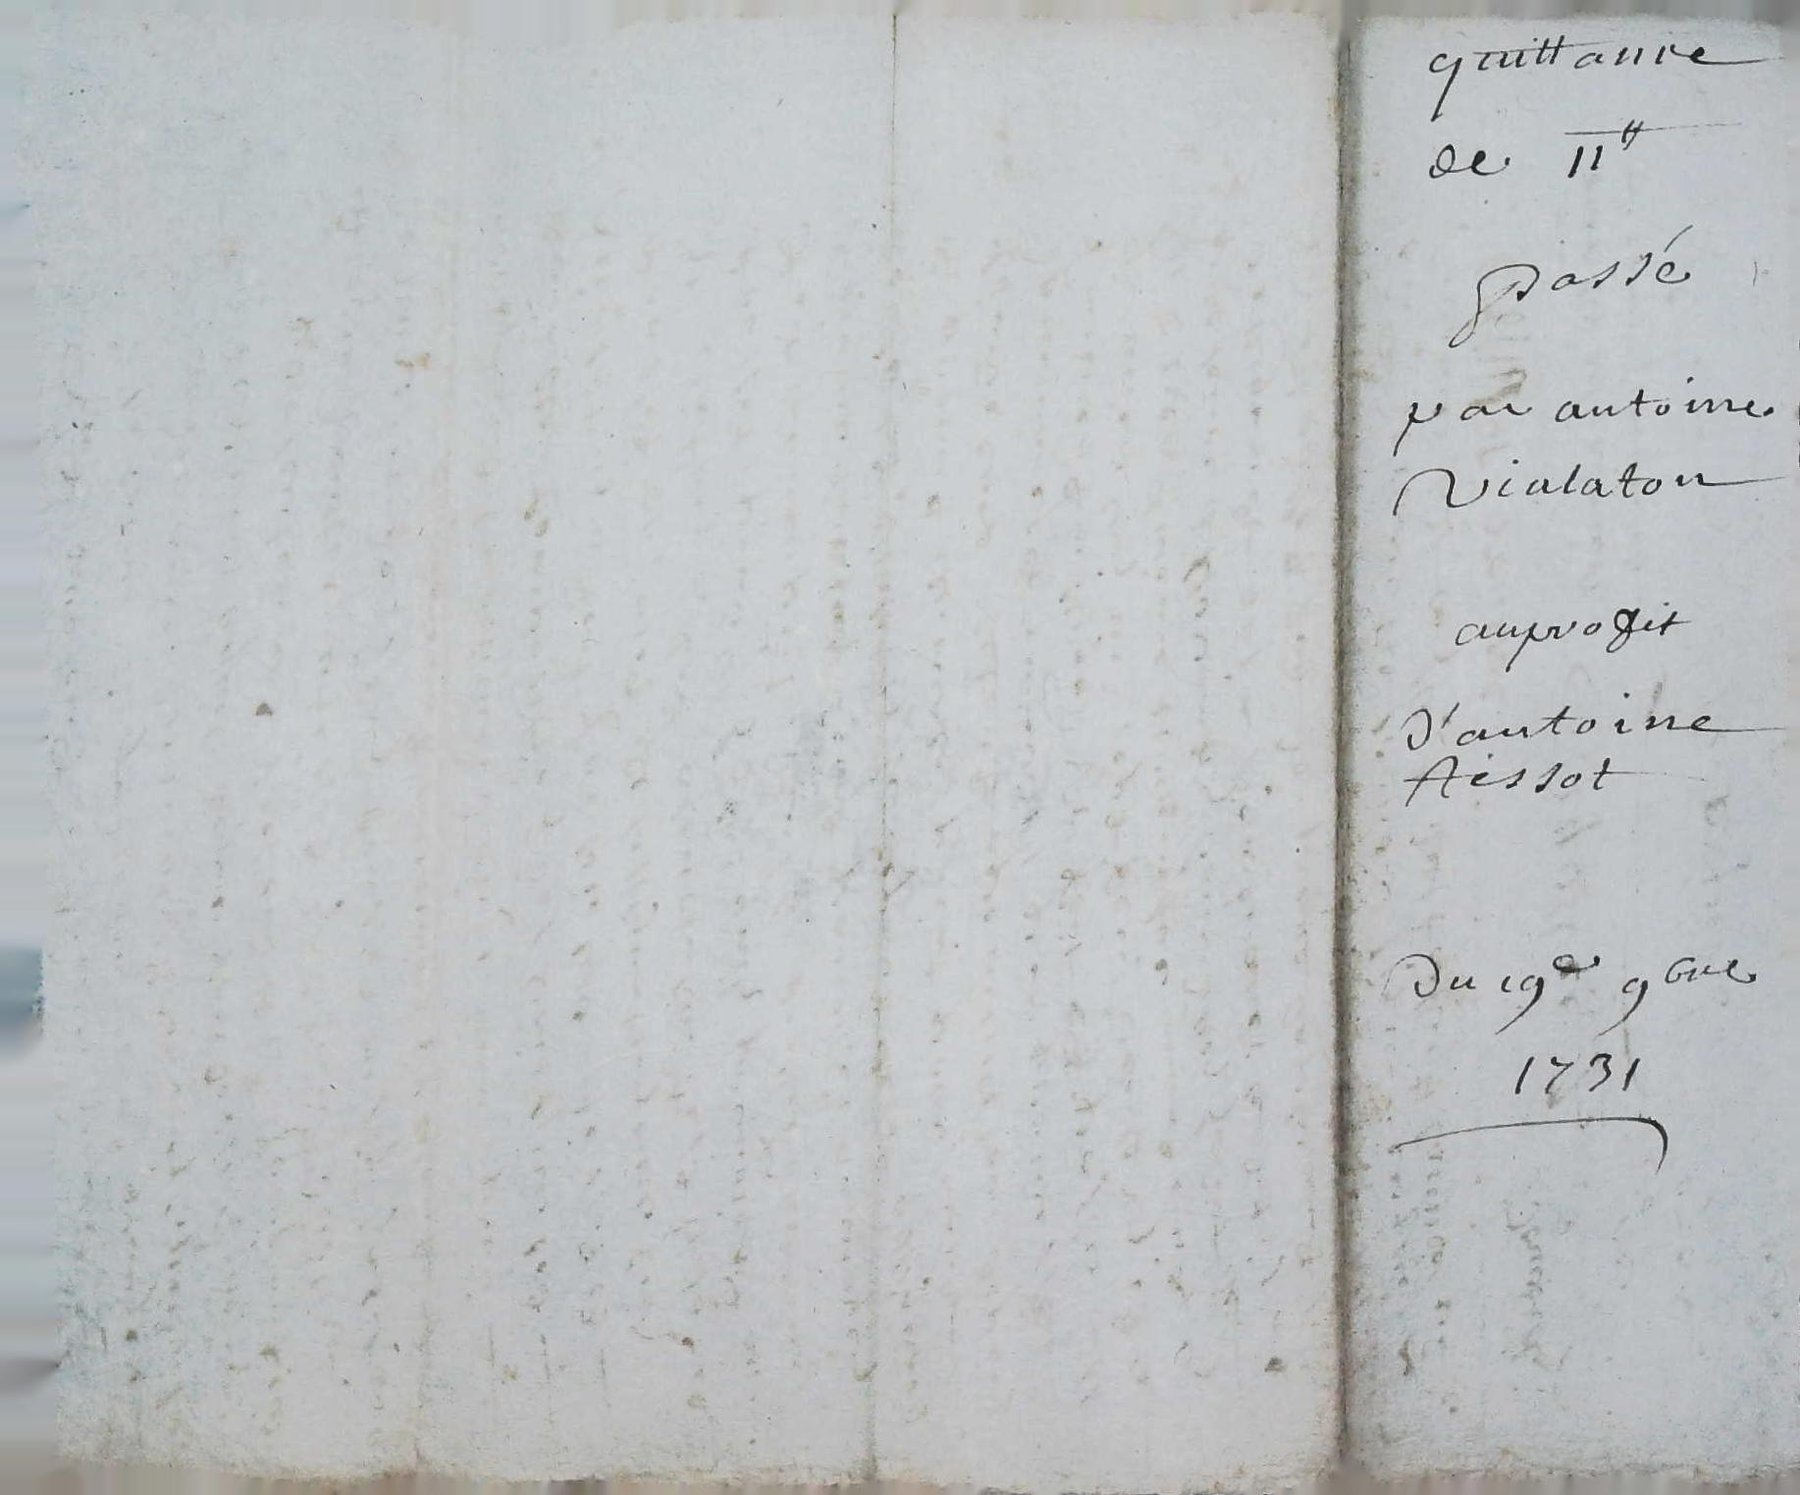 quittance
de 11tt
passé
par antoine
Vialaton
auprofit
d'antoine
Aissot
Du 19e 9bre
1731